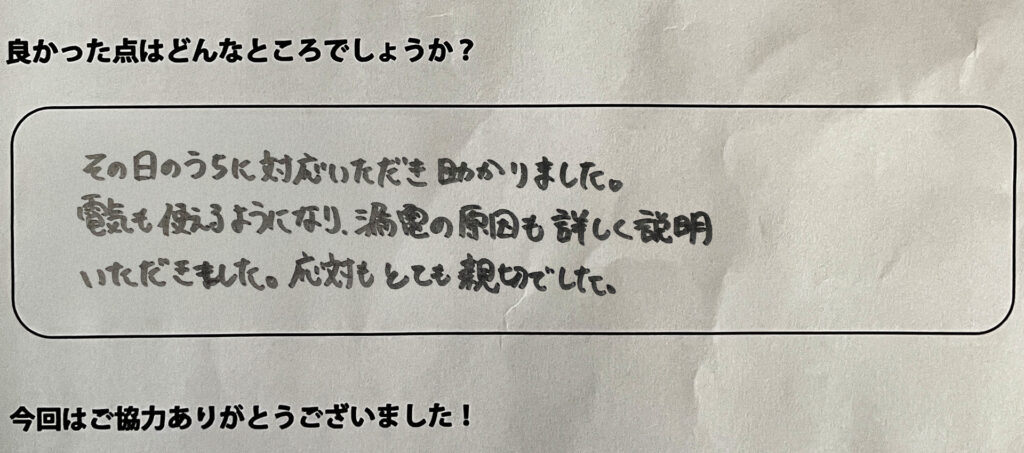 良かった点はどんなところでしょうか？
その日のうちに対応いただき助かりました。
電気も使えるようになり、漏電の原因も詳しく説明
いただきました。応対もとても親切でした。
今回はご協力ありがとうございました！